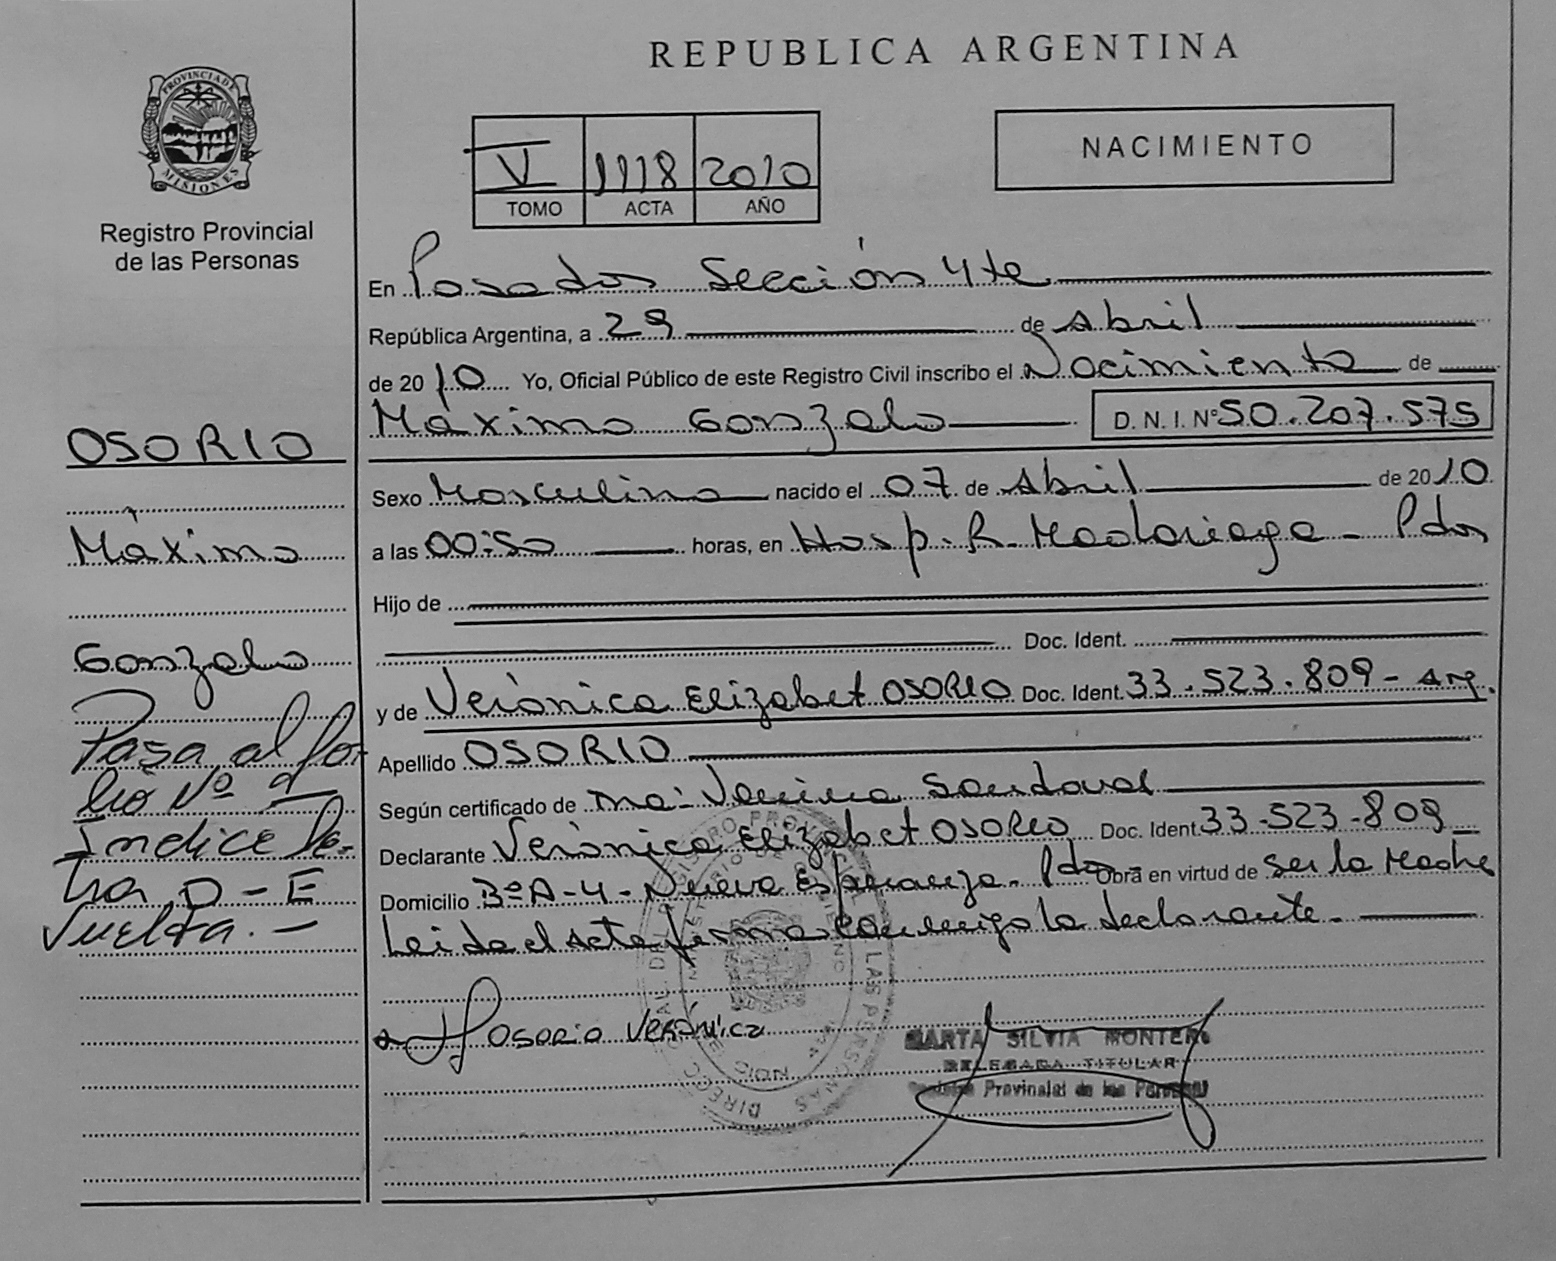 REPUBLICA ARGENTINA
PROVINCIA DE
MISIONES
Registro Provincial
de las Personas
V 1118 2010
TOMO ACTA AÑO
NACIMIENTO
En Posadas Sección 4te
República Argentina, a 29 de Abril
de 2010 Yo, Oficial Público de este Registro Civil inscribo el Nacimiento de
Máximo Gonzalo D. N. I. Nº 50.207.575
Sexo Masculino nacido el 07 de Abril de 2010
a las 00:50 horas, en Hosp. R. Madariaga - Pdas
Hijo de
Doc. Ident.
y de Verónica Elizabet OSORIO Doc. Ident. 33.523.809 - Arg.
Apellido OSORIO
Según certificado de Ma: Sandoval
Declarante Verónica Elizabet OSORIO Doc. Ident. 33-523-809
Domicilio 3º A-4 - Nueva Esperanza - Pdas Obra en virtud de ser la Madre
Leida el Acta firma conmigo la declarante.
Osorio Verónica
MARTA SILVIA MONTERO
DELEGADA TITULAR
Provincial de las Personas
OSORIO
Máximo
Gonzalo
Pasa al fo-
lio Nº 9
Indice Le-
tra D - E
Vuelta. -